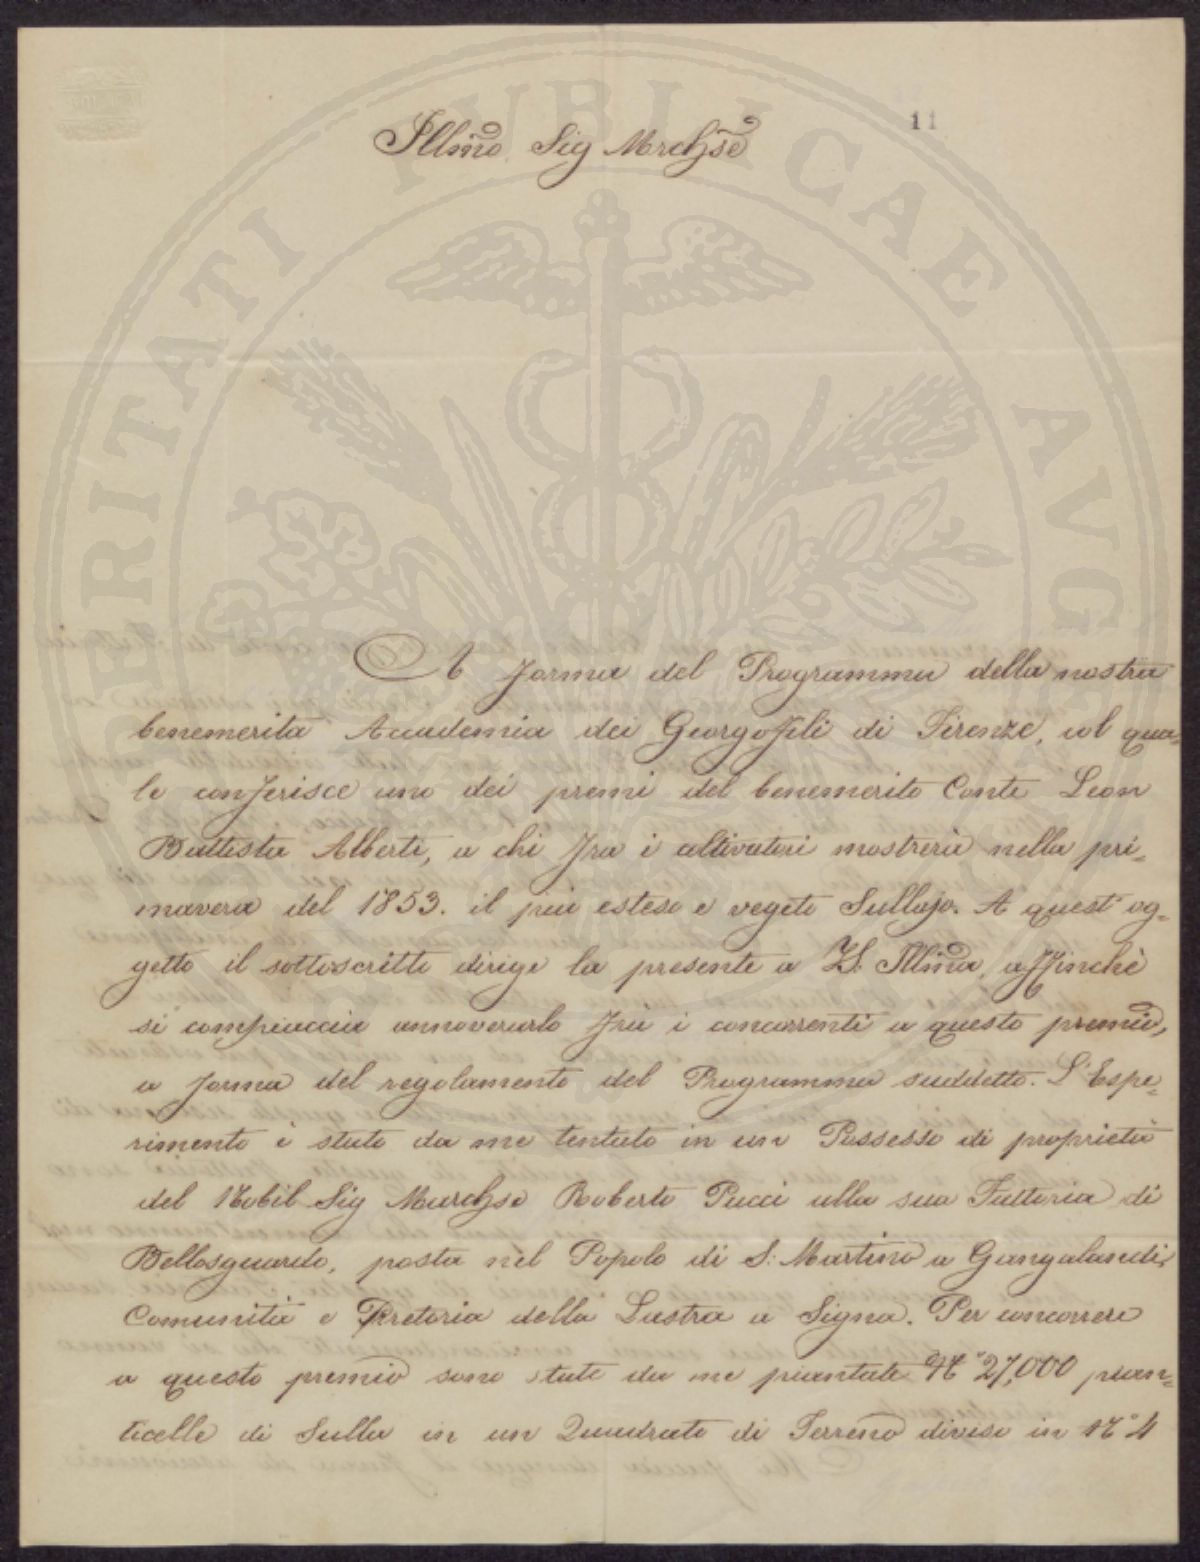 11
Illmo Sig Mrchse
A forma del Programma della nostra
benemerita Accademia dei Georgofili di Firenze, col qua=
le conferisce uno dei premi del benemerito Conte Leon
Battista Alberti, a chi fra i cultivatori mostrerà nella pri=
mavera del 1853. il più esteso e vegeto Sullajo. A quest'og=
getto il sottoscritto dirige la presente a V.S. Illma, affinchè
si compiaccia annoverarlo fra i concorrenti a questo premio,
a forma del regolamento del Programma suddetto. L'Espe=
rimento è stato da me tentato in un Possesso di proprietà
del Nobil Sig Marchse Roberto Pucci alla sua Fattoria di
Bellosguardo, posta nel Popolo di S: Martino a Gangalandi,
Comunità e Pretoria della Lastra a Signa. Per concorrere
a questo premio sono state da me piantate N° 27,000 pian=
ticelle di Sulla in un Quadrato di Terreno diviso in N° 4
PERITATI PVBLICAE AVG